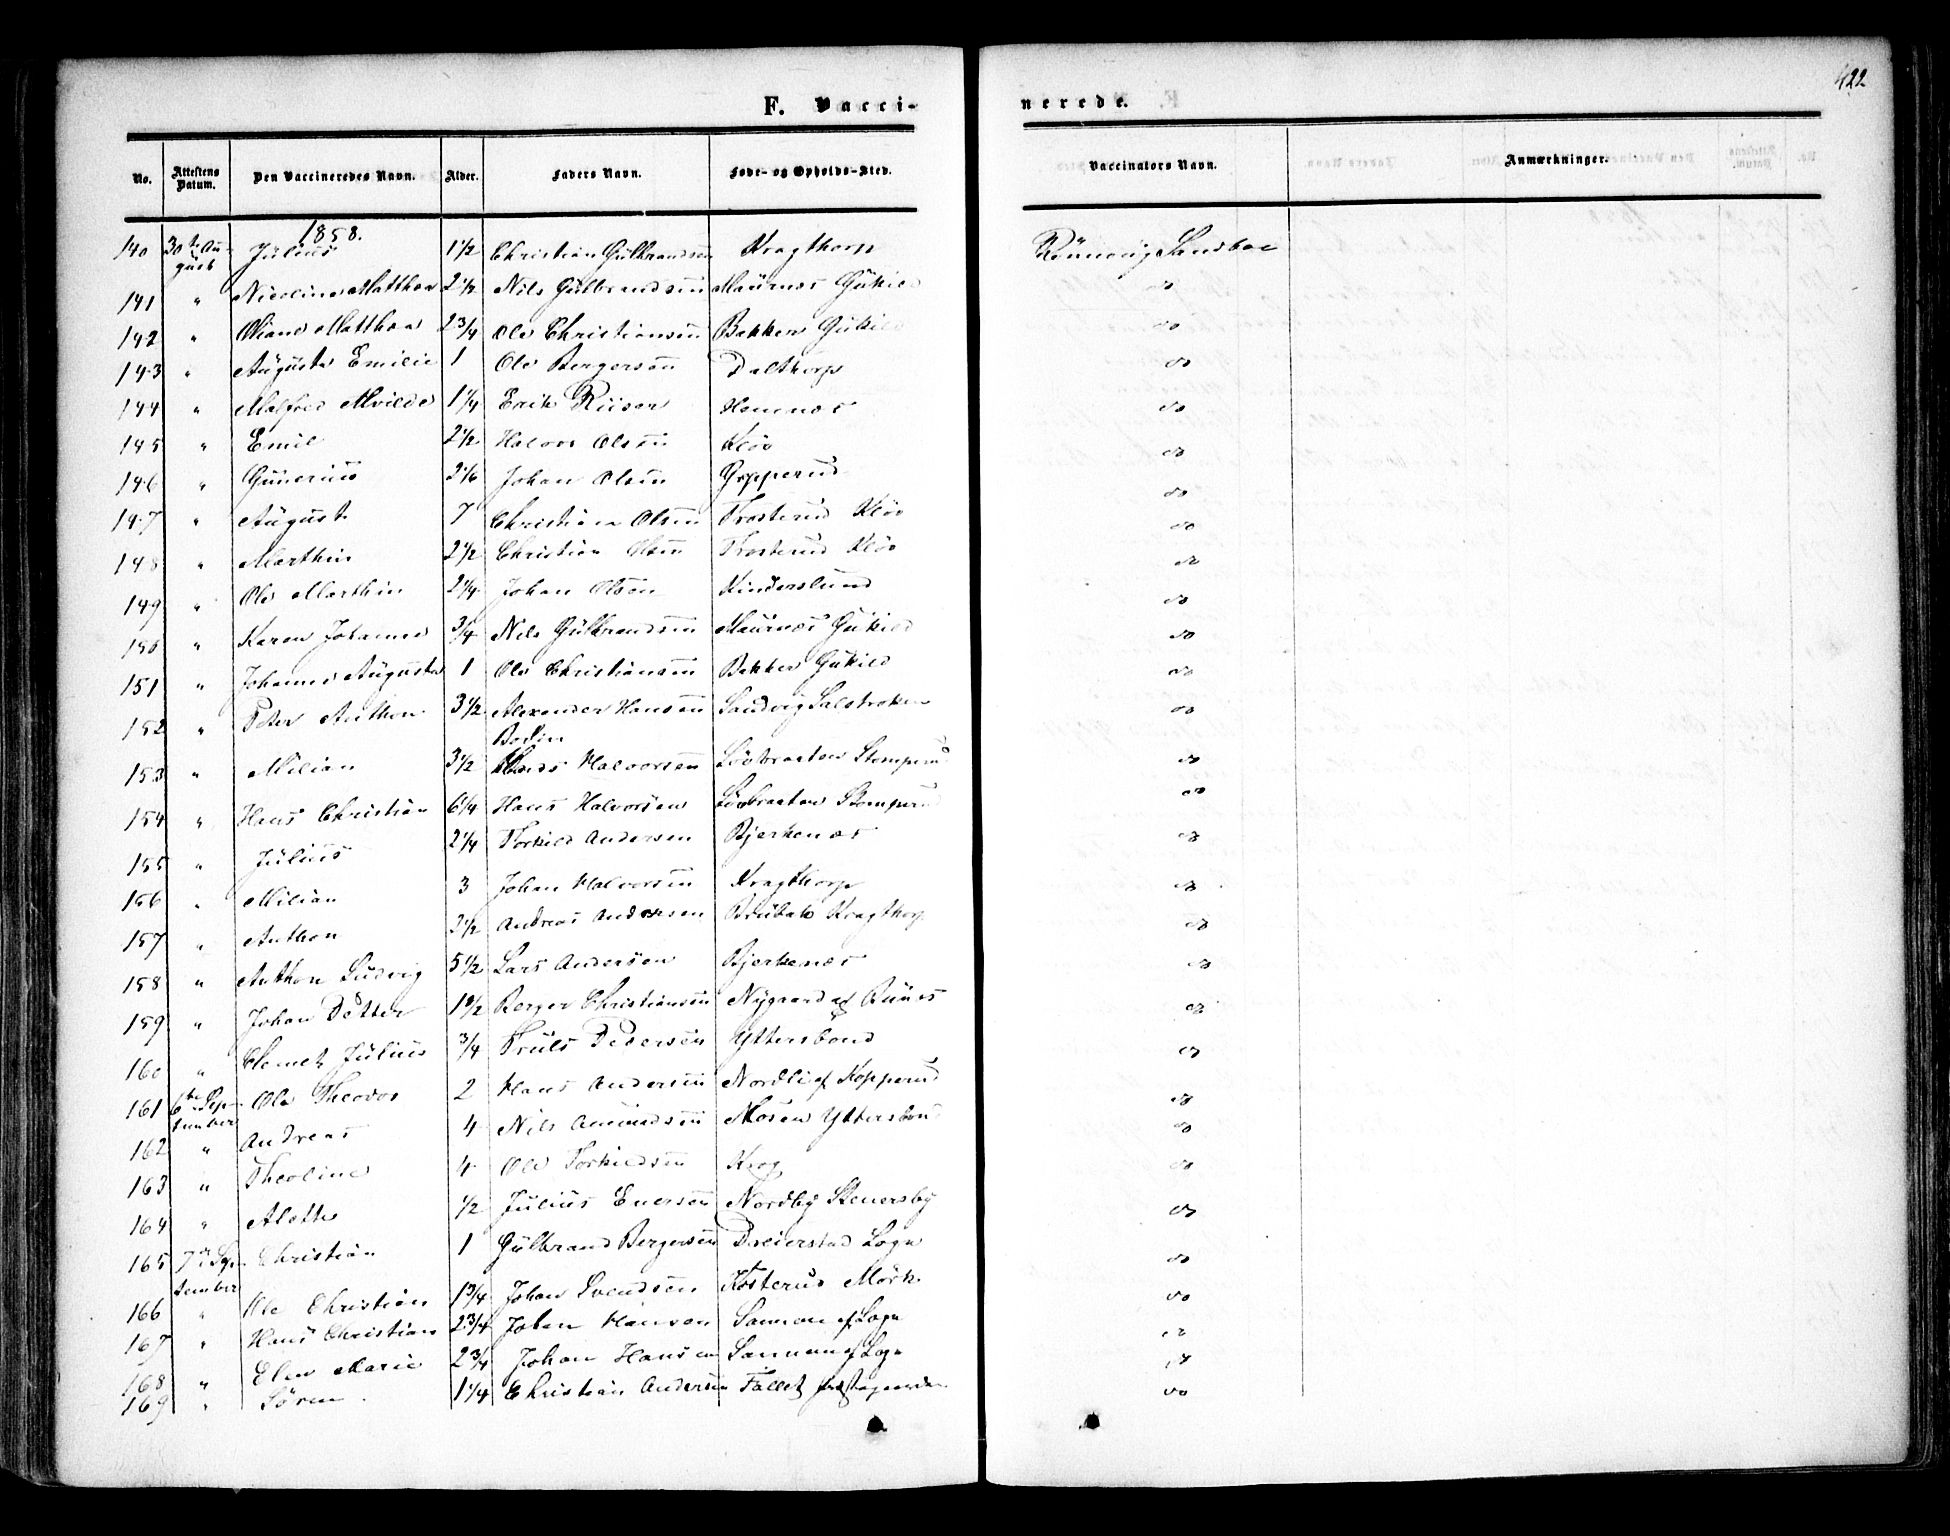 422
F. Vacci- nerede.
No. Attestens Datum. Den Vaccineredes Navn. Alder. Faders Navn. Føde- og Opholds-Sted. Vaccinators Navn. Anmærkninger.
1858.
140 30te August Julius 1 1/2 Christian Gulbrandsen Kragthorp Rönnaug Sandboe
141 " Nicoline Matthea 2 1/2 Nils Gulbrandsen Maurnæs Gukild do
142 " Matthea 2 3/4 Ole Christiansen Bakken Gukild do
143 " Auguste Emilie 1 Ole Bergersen Dalthorp do
144 " Malfred Alvilde 1 1/4 Erik Riiser Hemnæs do
145 " Emil 2 1/2 Halvor Olsen Klöv do
146 " Gunerius 2 1/6 Johan Olsen do
147 " August 7 Christian Olsen Trosterud Klöv do
148 " Marthin 2 1/2 Christian Olsen Trosterud Klöv do
149 " Ole Marthin 2 1/4 Johan Olsen Kinderslund do
150 " Karen Johanne 3/4 Nils Gulbrandsen Maurnæs Gukild do
151 " Johanne Augusta 1 Ole Christiansen Bakken Gukild do
152 " Peter Anthon 3 1/2 Alexander Hansen Bodin Sandvig do
153 " Milian 3 1/2 Hans Halvorsen Lövbraaten Stomperud do
154 " Hans Christian 6 1/4 Hans Halvorsen Lövbraaten Stomperud do
155 " Julius 2 1/4 Torkild Andersen Bjerkenæs do
156 " Milian 3 Johan Halvorsen Kragthorp do
157 " Anthon 2 1/2 Andreas Andersen Kragthorp do
158 " Anthon Ludvig 5 1/2 Lars Andersen Bjerkenæs do
159 " Johan Petter 1 1/2 Berger Christiansen Nygaard af do
160 " Clemet Julius 3/4 Truls Pedersen Yttersbond do
161 6te September Ole Theodor 2 Hans Andersen Nordli af Kopperud do
162 " Andreas 4 Nils Amundsen Mosen Yttersbond do
163 " Theoline 4 Ole Torkildsen Krog do
164 " Alethe 1/2 Julius Enersen Nordby Stenersby do
165 7de September Christian 1 Gulbrand Bergersen Dreierstad Logn do
166 " Ole Christian 1 3/4 Johan Svendsen Kosterud Mörk do
167 " Hans Christian 2 3/4 Johan Hansen Sannom af Logn do
168 " Elen Marie 2 3/4 Johan Hansen Sannom af Logn do
169 " Sören 1 1/4 Christian Andersen Fallet Præstegaarden do